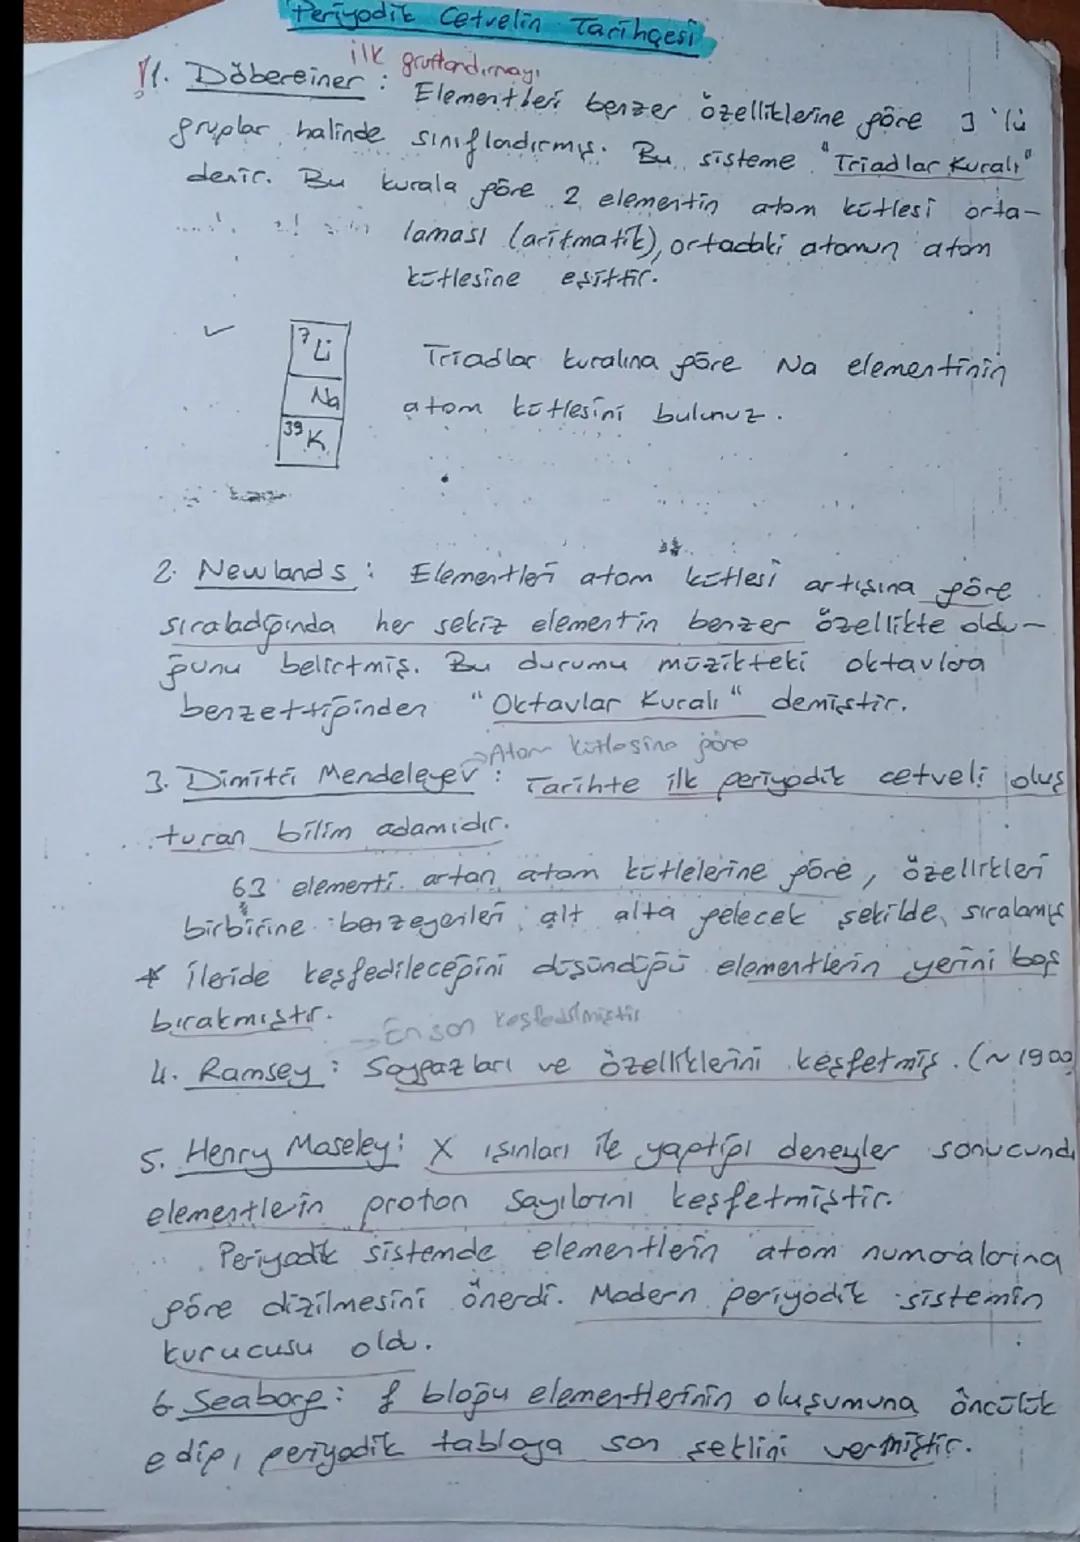 Periyodik Cetvelin Tarihçesi
ilk gruplandırmayı
1. Döbereiner : Elementleri benzer özelliklerine göre 3'lü
gruplar halinde sınıflandırmış. Bu sisteme "Triadlar Kuralı"
denir. Bu kurala göre 2 elementin atom kütlesi orta-
laması (aritmatik), ortadaki atomun atom
kütlesine eşittir.
7 Li
Na
39 K
Triadlar kuralına göre Na elementinin
atom kütlesini bulunuz.
2. Newlands : Elementleri atom kütlesi artışına göre
sıraladığında her sekiz elementin benzer özellikte oldu-
ğunu belirtmiş. Bu durumu müzikteki oktavlara
benzettiğinden "Oktavlar Kuralı" demiştir.
→Atom kütlesine göre
3. Dimitri Mendeleyev : Tarihte ilk periyodik cetveli oluş
turan bilim adamıdır.
63 elementi artan atom kütlelerine göre, özellikleri
birbirine benzeyenleri alt alta gelecek şekilde sıralamış
* ileride keşfedileceğini düşündüğü elementlerin yerini boş
bırakmıştır.
→En son keşfedilmiştir
4. Ramsey : Soygazları ve özelliklerini keşfetmiş. (~1900
5. Henry Moseley : X ışınları ile yaptığı deneyler sonucund
elementlerin proton sayılarını keşfetmiştir.
Periyodik sistemde elementlerin atom numaralarına
göre dizilmesini önerdi. Modern periyodik sistemin
kurucusu oldu.
6. Seaborg : f bloğu elementlerinin oluşumuna öncülük
edip, periyodik tabloya son şeklini vermiştir.